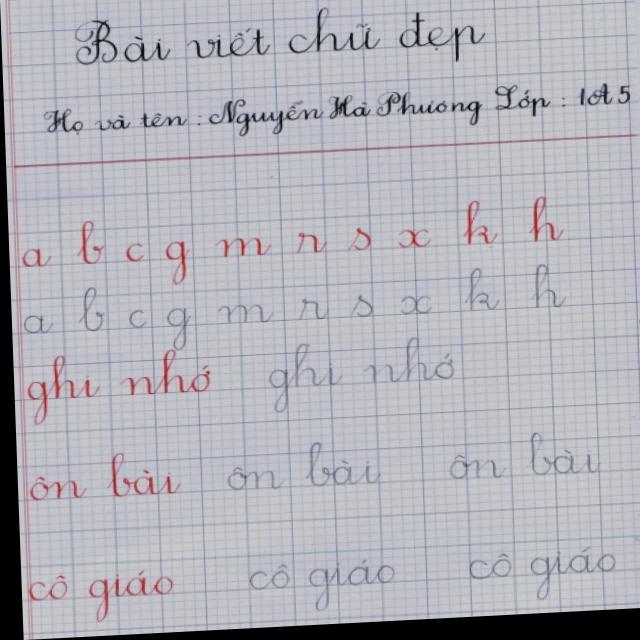 Bài viết chữ đẹp
Họ và tên: Nguyễn Hà Phương Lớp: 1A5
a b c g m r s x k h
a b c g m r s x k h
ghi nhớ ghi nhớ
ôn bài ôn bài ôn bài
cô giáo cô giáo cô giáo